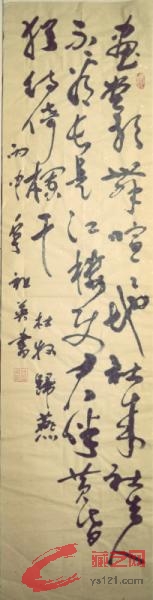 畫堂歌舞喧喧地社来社去人
不看长是江楼使君伴黄昏
猶待倚欄干 杜牧歸燕
丙申 祖英書
ys121.com